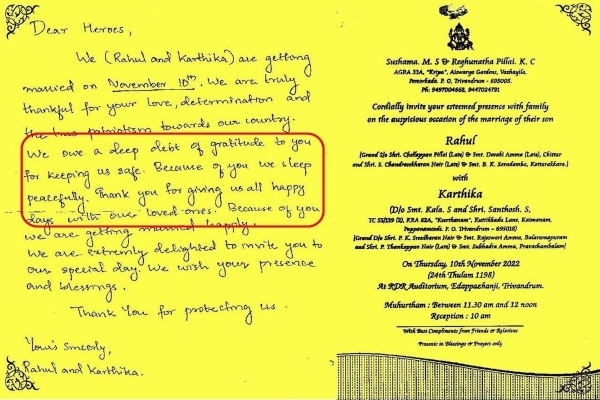 Dear Heroes,
We (Rahul and Karthika) are getting
married on November 10th. We are truly
thankful for your love, determination and
the true patriotism towards our country.
We owe a deep debt of gratitude to you
for keeping us safe. Because of you we sleep
peacefully. Thank you for giving us all happy
days with our loved ones. Because of you
we are getting married happily.
We are extremly delighted to invite you to
our special day. We wish your presence
and blessings.
Thank You for protecting us.
Your's sincerly,
Rahul and Karthika.
Sushama. M. S & Reghunatha Pillai. K. C
AGRA 32A, "Kripa", Aiswarya Gardens, Vazhayila,
Peroorkada. P. O, Trivandrum - 695005.
Ph: 9497004668, 9447024791
Cordially invite your esteemed presence with family
on the auspicious occasion of the marriage of their son
Rahul
[Grand S/o Shri. Chellappan Pillai (Late) & Smt. Devaki Amma (Late), Chittar
and Shri. S. Chandrasekharan Nair (Late) & Smt. B. K. Saradamba, Kottarakkara.]
with
Karthika
(D/o Smt. Kala. S and Shri. Santhosh. S,
TC 53/139 (2), KRA 62A, "Keerthanam", Kuttikkadu Lane, Kaimanam,
Pappanamcode. P. O. Trivandrum - 695018)
[Grand D/o Shri. P. K. Sreedharan Nair & Smt. Rajeswari Amma, Balaramapuram
and Shri. P. Thankappan Nair (Late) & Smt. Subhadra Amma, Pravachambalam]
On Thursday, 10th November 2022
(24th Thulam 1198)
At RDR Auditorium, Edappazhanji, Trivandrum.
Muhurtham : Between 11.30 am and 12 noon
Reception : 10 am
With Best Compliments from Friends & Relations
Presents in Blessings & Prayers only